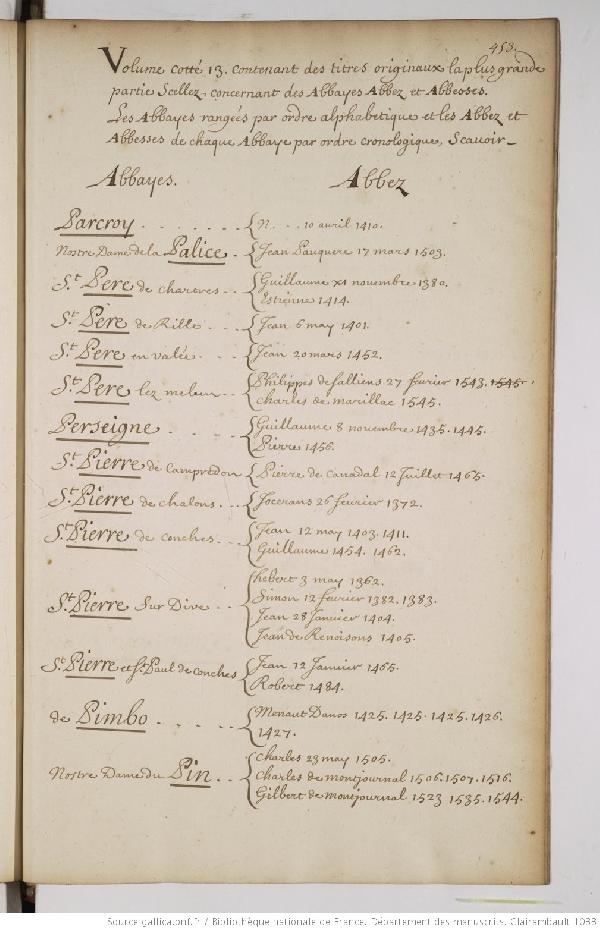 453.
Volume cotté 13. contenant des titres originaux la plus grande
partie Scellez concernant des Abbayes Abbez et Abbesses.
Les Abbayes rangées par ordre alphabetique et les Abbez et
Abbesses de chaque Abbaye par ordre cronologique, Scauoir_
Abbayes. Abbez
Parcroy . . . . . . . N. . . . 10 auril 1410.
Nostre Dame de la Palice . . Jean Pauquere 17 mars 1503.
St. Pere de chartres . . Guillaume xi nouembre 1380.
Estienne 1414.
St. Pere de Rille . . . Jean 6 may 1401.
St. Pere en valée . . . Jean 20 mars 1452.
St. Pere lez melun . . Philippes de salliens 27 feurier 1543. 1545.
charles de marillac 1545.
Perseigne . . . . . Guillaume 8 nouembre 1435. 1445.
Pierre 1456.
St. Pierre de Campredon Pierre de Canadal 12 Juillet 1465.
St. Pierre de chalons . . Jocerans 26 feurier 1372.
St. Pierre de conches . . Jean 12 may 1403. 1411.
Guillaume 1454. 1462.
St. Pierre Sur Diue . . hebert 3 may 1362.
Simon 12 feurier 1382. 1383.
Jean 28 Januier 1404.
Jean de Renoisons 1405.
St. Pierre et St. Paul de conches Jean 12 Januier 1465.
Robert 1484.
de Pimbo . . . . . Menaut Danos 1425. 1425. 1425. 1426.
1427.
Nostre Dame du Pin . . Charles 23 may 1505.
Charles de montjournal 1506. 1507. 1516.
Gilbert de montjournal 1523 1535. 1544.
Source gallica.bnf.fr / Bibliothèque nationale de France. Département des manuscrits. Clairambault 1033